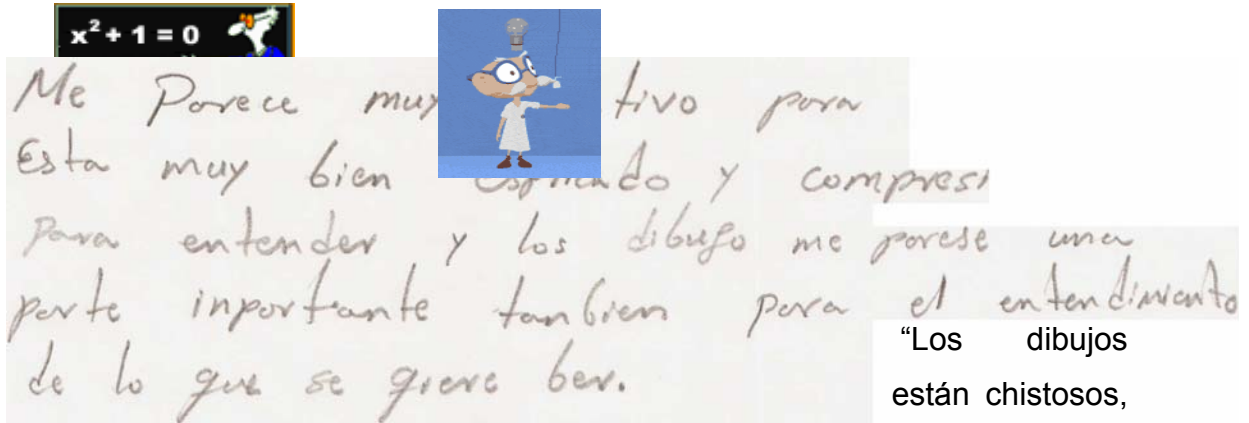 x² + 1 = 0
Me Parece muy tivo para
Esta muy bien y compresi
Para entender y los dibugo me parese una
parte inportante tanbien para el entendimiento
de lo que se qiere ber.
“Los dibujos
están chistosos,